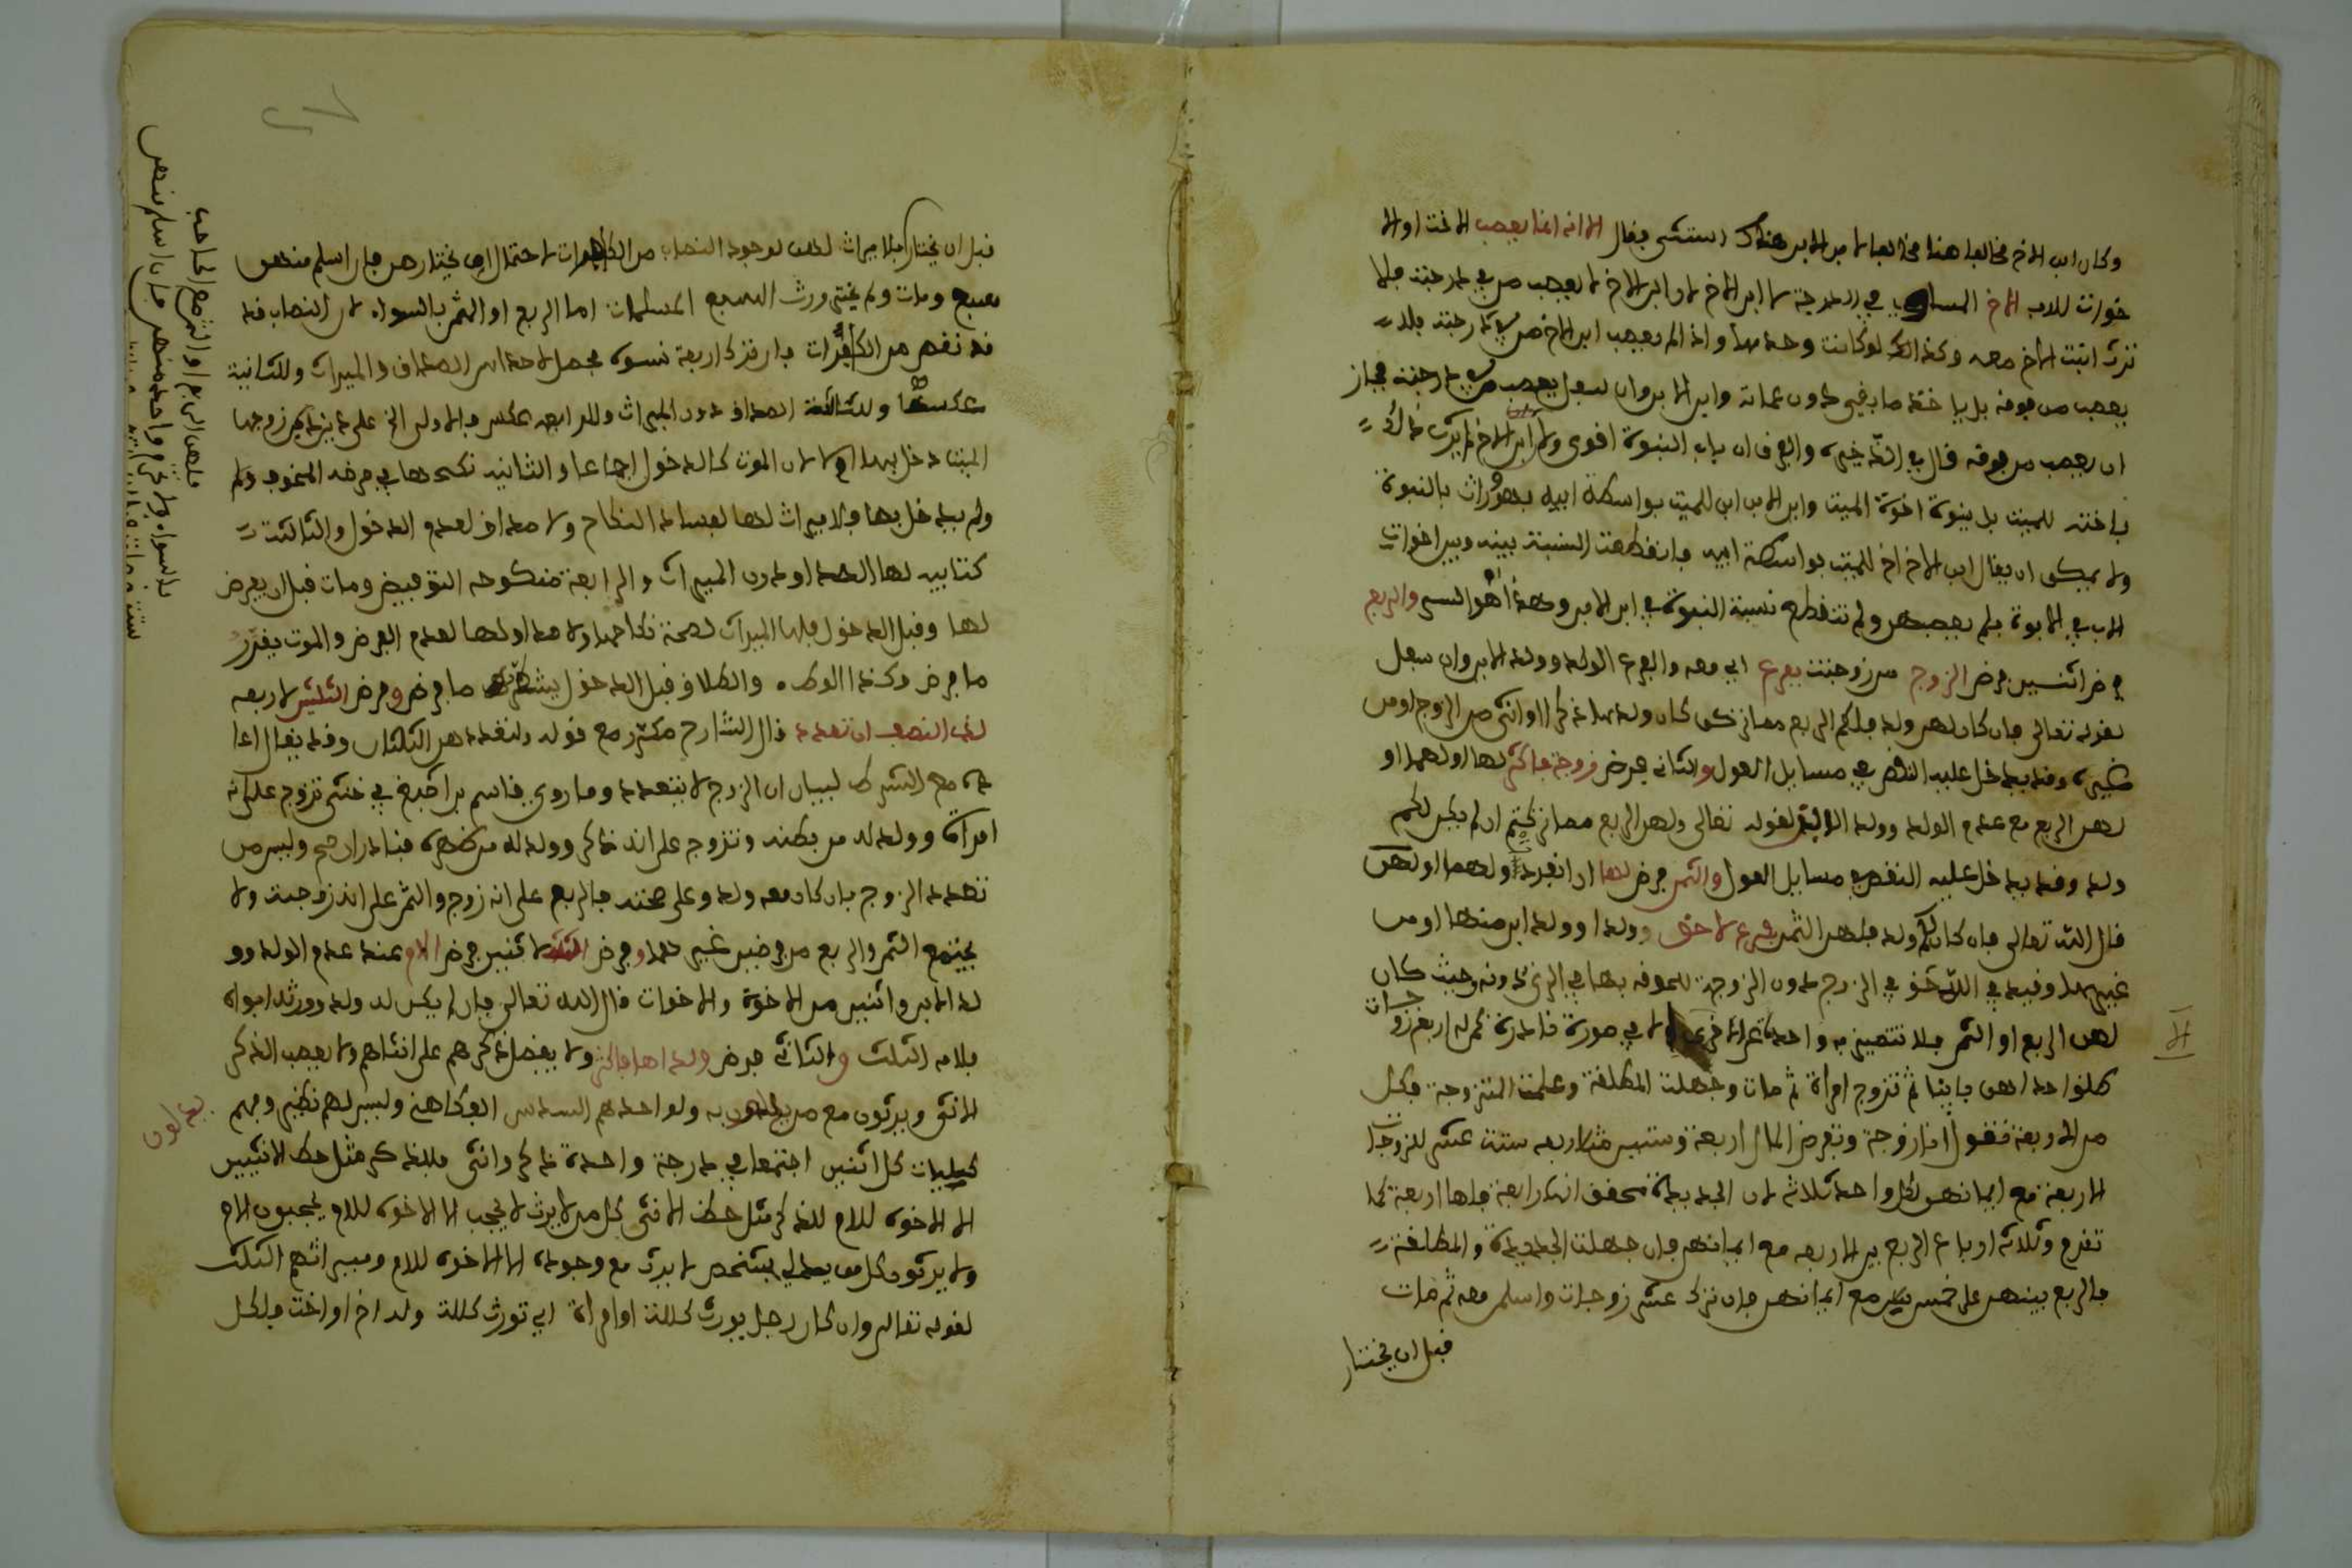 وكان ابن الاخ مخالفا هنا مخالفا لابن الابن هناك استثنى فقال الا انه انما يعصب الاخت او الا
خوات للاب الاخ المساوي في الدرجة لا ابن الاخ لان ابن الاخ لا يعصب من في درجته فلا
ترث ابنت الاخ معه وكذلك لو كانت وحدها واذا لم يعصب ابن الاخ من في درجته فلا
يعصب من فوقه بل ياخذ ما بقي دون عماته وابن الابن وان سفل يعصب من في درجته فجاز
ان يعصب من فوقه قال في الذخيرة والفرق ان باب البنوة اقوى ولان ابن الاخ لا يرث ذلك
باخته للميت بل ببنوة اخوة الميت وابن الابن ابن للميت بواسطة ابيه فهو وارث بالبنوة
ولا يمكن ان يقال ابن الاخ اخ للميت بواسطة ابيه فانقطعت النسبة بينه وبين اخوات
الاب في الابوة فلم يعصبهن ولم تنقطع نسبة البنوة في ابن الابن وهذا هو السر والربع
فرض اثنين فرض الزوج من زوجته بفرع اي معه والفرع الولد وولد الابن وان سفل
لقوله تعالى فان كان لهن ولد فلكم الربع مما تركن كان ولدها ذكرا او انثى من الزوج او من
غيره وقد يدخل عليه النقص في مسايل العول والثاني فرض زوجة فاكثر لها او لهما او
لهن الربع مع عدم الولد وولد الابن لقوله تعالى ولهن الربع مما تركتم ان لم يكن لكم
ولد وقد يدخل عليه النقص في مسايل العول والثمن فرض لها ان انفردت او لهما او لهن
قال الله تعالى فان كان لكم ولد فلهن الثمن بفرع لاحق ولدا او ولد ابن منها او من
غيرها وقيد في اللاحق في الزوج دون الزوجة للحوقه بها في الزنى دونه وحيث كان
لهن الربع او الثمن فلا تتميز به واحدة عن الاخرى الا في صورة نادرة كمن له اربع زوجات
طلق احداهن باينا ثم تزوج امراة ثم مات وجهلت المطلقة وعلمت المتزوجة فكل
من الاربعة تقول انا زوجة وتفرض المال اربعة وستين مثلا ربعه ستة عشر للزوجات
الاربعة مع ايمانهن لكل واحدة ثلاثة لان الجديدة تحقق انها رابعة فلها اربعة كما
تقدم وثلاثة ارباع الربع بين الاربعة مع ايمانهن فان جهلت الجديدة والمطلقة
فالربع بينهن على خمس سهم مع ايمانهن فان ترك عشر زوجات واسلمن معه ثم مات
قبل ان يختار
قبل ان يختار فلا ميراث لهن لوجود النصاب من الكافرات لاحتمال ان يختارهن فان اسلم منهن
سبع ومات ولم يختر ورث السبع المسلمات اما الربع او الثمن بالسواء لان النصاب قد
قد نقص من الكافرات فان ترك اربعة نسوة فجعل لاحداهن الصداق والميراث وللثانية
عكسها وللثالثة الصداق دون الميراث وللرابعة عكس فالاولى التي على غيرها كبر زوجها
الميت دخل بها ام لا لان الموت كالدخول اجماعا والثانية نكحها في مرضه المخوف ولم
ولم يدخل بها فلا ميراث لها لفساد النكاح ولا صداق لعدم الدخول والثالثة
كتابية لها الصداق دون الميراث والرابعة منكوحة التفويض ومات قبل ان يفرض
لها وقبل الدخول فلها الميراث لصحة نكاحها ولا صداق لها لعدم الفرض والموت يقرر
ما فرض وكذا الوطء والطلاق قبل الدخول يشطر ما فرض وفرض الثلثين لاربعة
لذات النصف ان تعدد قال الشارح مكرر مع قوله ولتعددهن الثلثان وقد يقال اعا
ده مع الشرط لبيان ان الزوج لا يتعدد وما روي قاسم بن اصبغ في خنثى تزوج على انه
امراة وولد له من بطنه وتزوج على انه ذكر وولد له من ظهره فنادران صح وليس من
تعدد الزوج فان كان معه ولد وعلى صحته فالربع على انه زوج والثمن على انه زوجة ولا
يجتمع الثمن والربع من فرضين غير هما وفرض الثلث لاثنين فرض الام عند عدم الولد وو
لد الابن واثنين من الاخوة والاخوات قال الله تعالى فان لم يكن له ولد وورثه ابواه
فلامه الثلث والثاني فرض ولداها فاكثر ولا يفضل ذكرهم على انثاهم ولا يعصب الذكر
الانثى ويرثون مع من يدلون به ولو احدهم السدس ابو كاهني وليس لهم نظير ومنهم
كليات كل اثنين اجتمعا في درجة واحدة ذكر وانثى فللذكر مثل حظ الانثيين
الا الاخوة للام للذكر مثل حظ الانثى كل من لا يرث لا يحجب الا الاخوة للام يحجبون الام
ولا يرثون كل من يدلي بشخص لا يرث مع وجوده الا الاخوة للام وميراثهم الثلث
لقوله تعالى وان كان رجل يورث كلالة او امراة اي تورث كلالة وله اخ او اخت فلكل
يدلون
فلهن الربع او الثمن مع الصاحب
بالسواء ولا حق واحدة منهن فان اسلم منهن